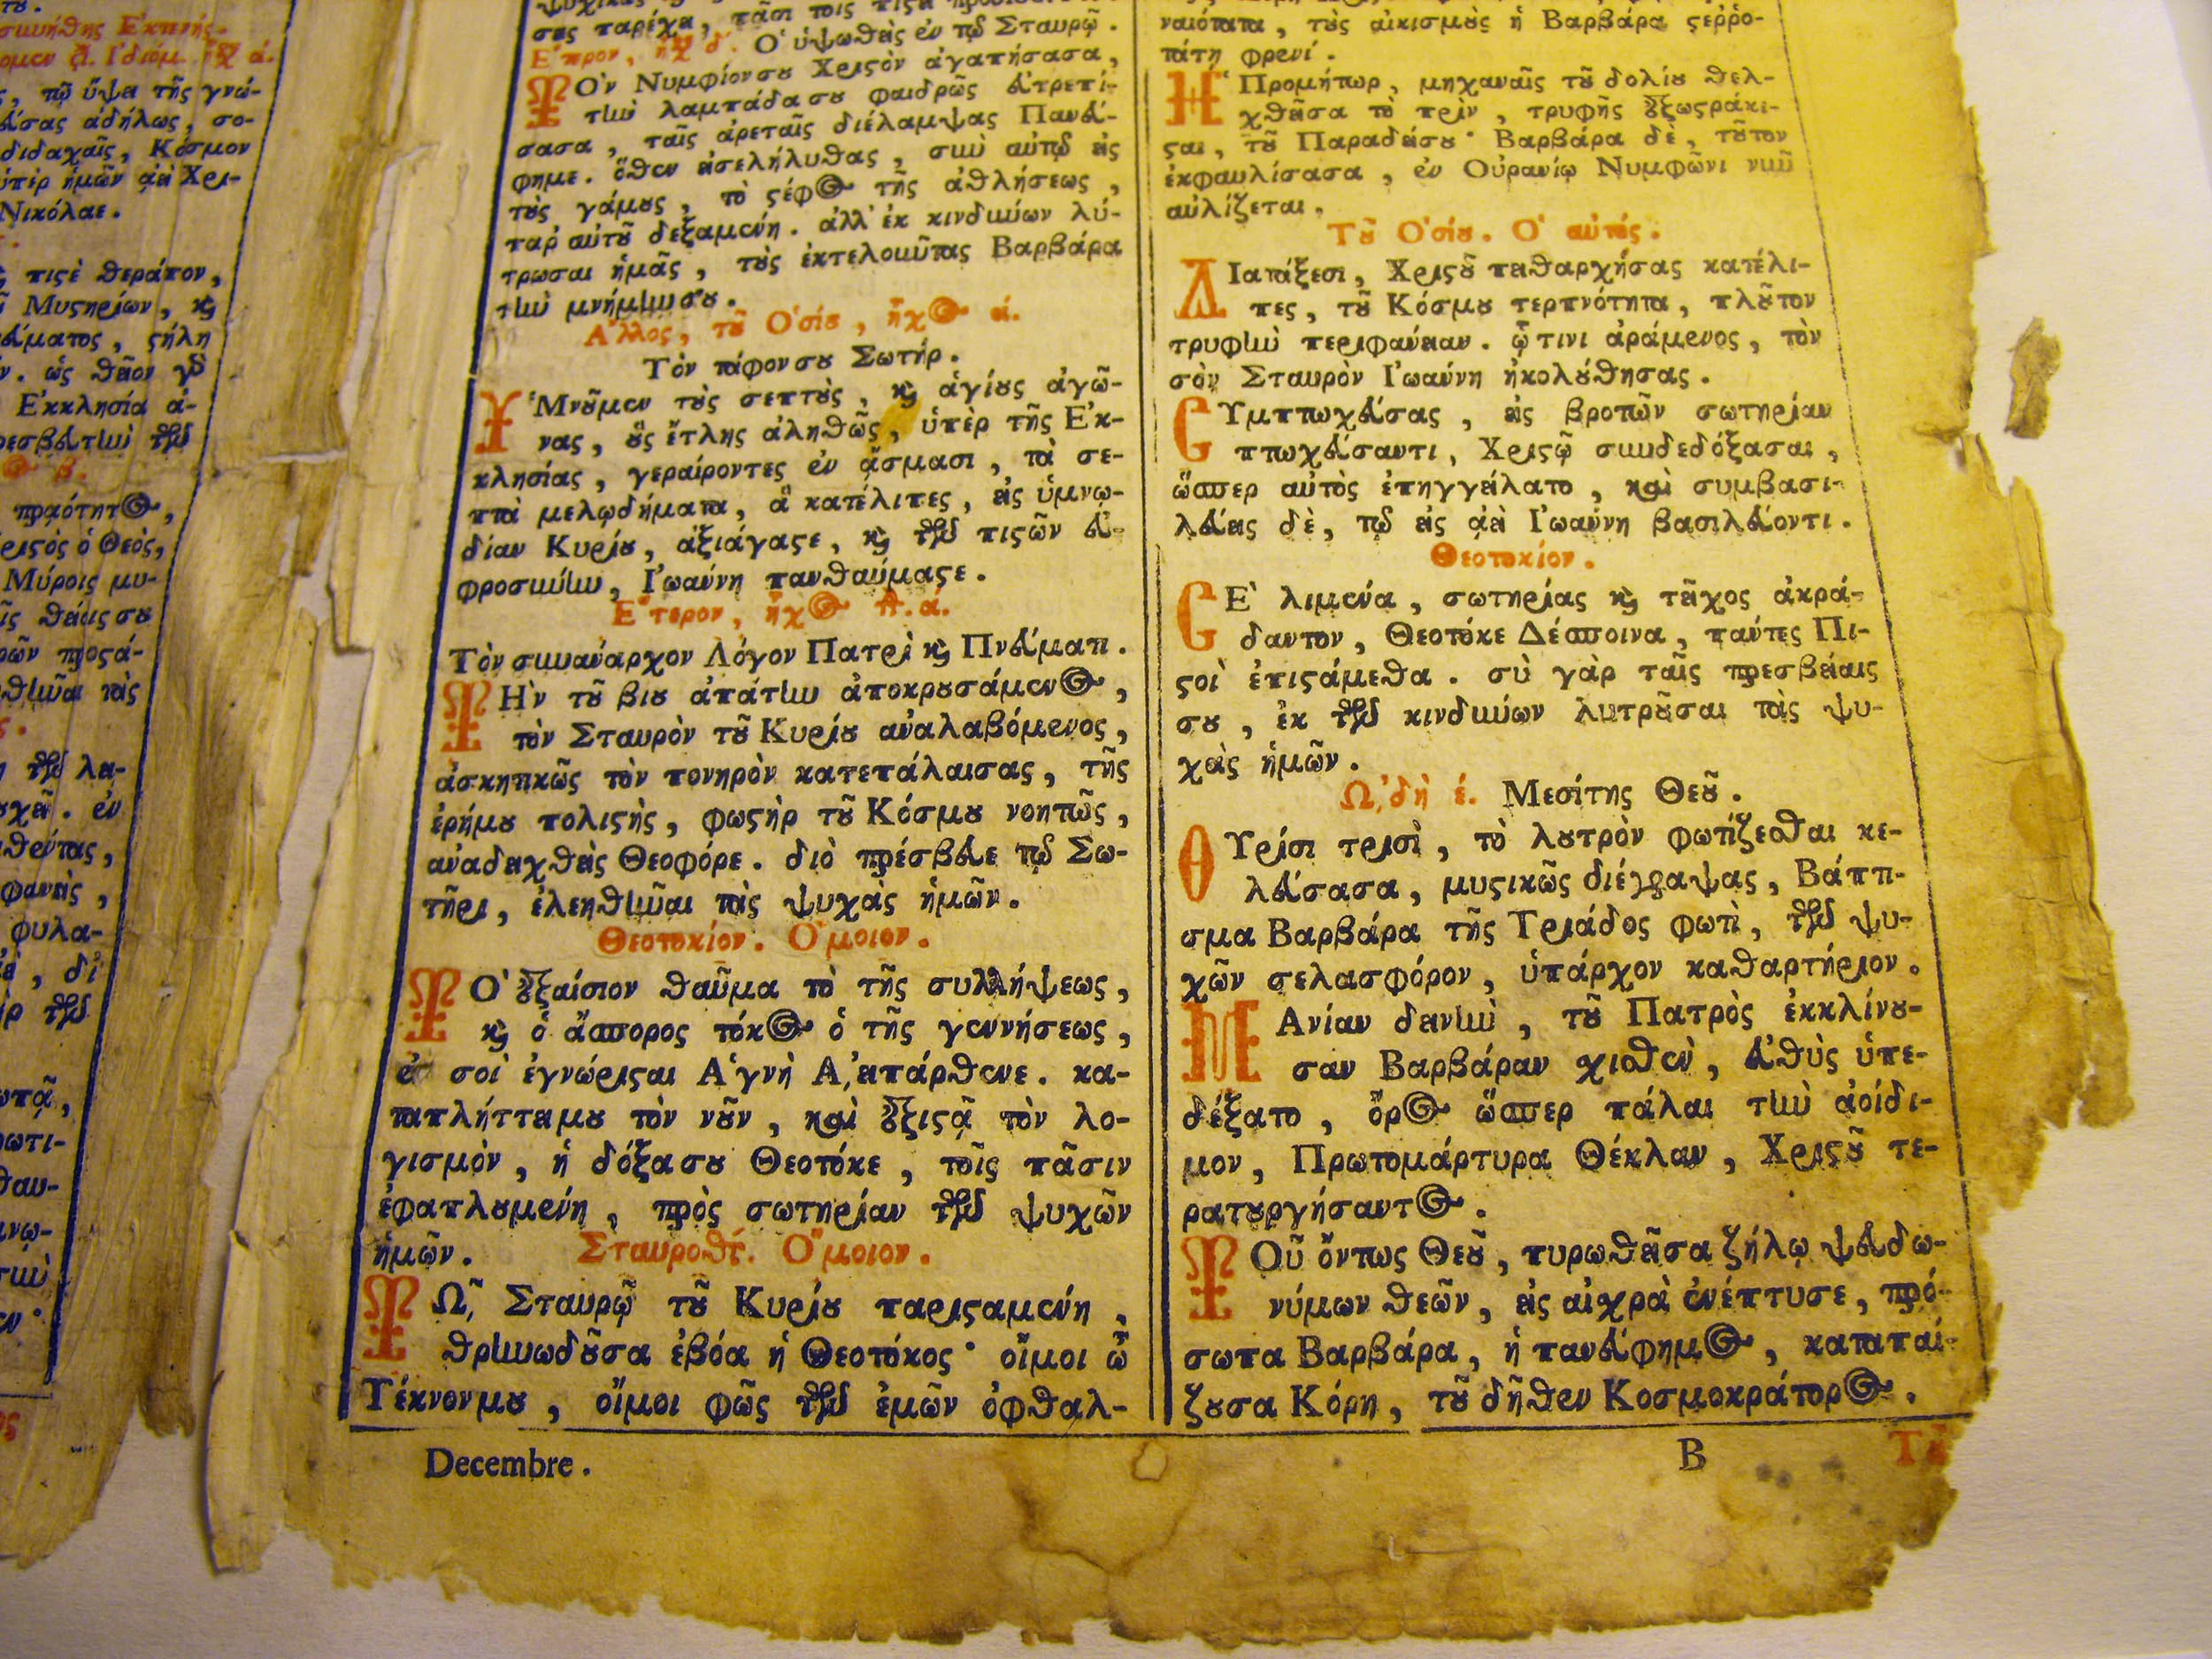 συνήθης Ἐκτενής.
τῷ ὕψει τῆς γνώ-
σας ἀδήλως, σο-
διδαχαῖς, Κόσμον
ὑπὲρ ἡμῶν ἀεὶ Χρι-
Νικόλαε.
πιστὲ θεράπον,
Μυστηρίων, καὶ
στήλη
ὡς θεῖον γὰρ
Ἐκκλησία ἀ-
πραότητος,
ὁ Θεὸς,
Μύροις μυ-
θείαις σου
τὰς
τῶν λα-
ἐν
φυλα-
σας παρέχει, πᾶσι τοῖς
Ἕτερον, ἦχος δ'. Ὁ ὑψωθεὶς ἐν τῷ Σταυρῷ.
ΤΟν Νυμφίον σου Χριστὸν ἀγαπήσασα,
τὴν λαμπάδα σου φαιδρῶς εὐτρεπί-
σασα, ταῖς ἀρεταῖς διέλαμψας Πανεύ-
φημε. ὅθεν εἰσελήλυθας, σὺν αὐτῷ εἰς
τοὺς γάμους, τὸ στέφος τῆς ἀθλήσεως,
παρ' αὐτοῦ δεξαμένη. ἀλλ' ἐκ κινδύνων λύ-
τρωσαι ἡμᾶς, τοὺς ἐκτελοῦντας Βαρβάρα
τὴν μνήμην σου.
Ἄλλος, τοῦ Ὁσίου, ἦχος ά.
Τὸν τάφον σου Σωτήρ.
ὙΜνοῦμεν τοὺς σεπτοὺς, καὶ ἁγίους ἀγῶ-
νας, οὓς ἔτλης ἀληθῶς, ὑπὲρ τῆς Ἐκ-
κλησίας, γεραίροντες ἐν ᾄσμασι, τὰ σε-
πτὰ μελῳδήματα, ἃ κατέλιπες, εἰς ὑμνῳ-
δίαν Κυρίου, ἀξιάγαστε, καὶ τῶν πιστῶν εὐ-
φροσύνην, Ἰωάννη πανθαύμαστε.
Ἕτερον, ἦχος πλ. ά.
Τὸν συνάναρχον Λόγον Πατρὶ καὶ Πνεύματι.
ΤΗν τοῦ βίου ἀπάτην ἀποκρουσάμενος,
τὸν Σταυρὸν τοῦ Κυρίου ἀναλαβόμενος,
ἀσκητικῶς τὸν πονηρὸν κατεπάλαισας, τῆς
ἐρήμου πολιστὴς, φωστὴρ τοῦ Κόσμου νοητῶς,
ἀναδειχθεὶς Θεοφόρε. διὸ πρέσβευε τῷ Σω-
τῆρι, ἐλεηθῆναι τὰς ψυχὰς ἡμῶν.
Θεοτοκίον. Ὅμοιον.
ΤΟ ἐξαίσιον θαῦμα τὸ τῆς συλλήψεως,
καὶ ὁ ἄσπορος τόκος ὁ τῆς γεννήσεως,
ἐν σοὶ ἐγνώρισται Ἁγνὴ Ἀειπάρθενε. κα-
ταπλήττει μου τὸν νοῦν, καὶ ἐξιστᾷ τὸν λο-
γισμὸν, ἡ δόξα σου Θεοτόκε, τοῖς πᾶσιν
ἐφαπλουμένη, πρὸς σωτηρίαν τῶν ψυχῶν
ἡμῶν. Σταυροθτ. Ὅμοιον.
ΤΩͺ Σταυρῷ τοῦ Κυρίου παρισταμένη,
θρηνωδοῦσα ἐβόα ἡ Θεοτόκος· οἴμοι ὦ
Τέκνον μου, οἴμοι φῶς τῶν ἐμῶν ὀφθαλ-
Decembre.
ναιότατα, τοὺς αἰκισμοὺς ἡ Βαρβάρα στεῤῥο-
τάτῃ φρενί.
Ἡ Προμήτωρ, μηχαναῖς τοῦ δολίου θελ-
χθεῖσα τὸ πρὶν, τρυφῆς ἐξωστράκι-
σται, τοῦ Παραδείσου· Βαρβάρα δὲ, τοῦτον
ἐκφαυλίσασα, ἐν Οὐρανίῳ Νυμφῶνι νῦν
αὐλίζεται.
Τοῦ Ὁσίου. Ὁ αὐτός.
ΔΙατάξεσι, Χριστοῦ πειθαρχήσας κατέλι-
πες, τοῦ Κόσμου τερπνότητα, πλοῦτον
τρυφὴν περιφάνειαν. ᾧτινι ἀράμενος, τὸν
σὸν Σταυρὸν Ἰωάννη ἠκολούθησας.
ΣΥμπτωχεύσας, εἰς βροτῶν σωτηρίαν
πτωχεύσαντι, Χριστῷ συνδεδόξασαι,
ὥσπερ αὐτὸς ἐπηγγείλατο, καὶ συμβασι-
λεύεις δὲ, τῷ εἰς ἀεὶ Ἰωάννη βασιλεύοντι.
Θεοτοκίον.
ΣΕ λιμένα, σωτηρίας καὶ τεῖχος ἀκρά-
δαντον, Θεοτόκε Δέσποινα, πάντες Πι-
στοὶ ἐπιστάμεθα. σὺ γὰρ ταῖς πρεσβείαις
σου, ἐκ τῶν κινδύνων λυτροῦσαι τὰς ψυ-
χὰς ἡμῶν.
Ὠͺδὴ έ. Μεσίτης Θεοῦ.
ΘΥρίσι τρισὶ, τὸ λουτρὸν φωτίζεσθαι κε-
λεύσασα, μυστικῶς διέγραψας, Βάπτι-
σμα Βαρβάρα τῆς Τριάδος φωτὶ, τῶν ψυ-
χῶν σελασφόρον, ὑπάρχον καθαρτήριον.
ΜΑνίαν δεινὴν, τοῦ Πατρὸς ἐκκλίνου-
σαν Βαρβάραν χισθὲν, εὐθὺς ὑπε-
δέξατο, ὄρος ὥσπερ πάλαι τὴν ἀοίδι-
μον, Πρωτομάρτυρα Θέκλαν, Χριστοῦ τε-
ρατουργήσαντος.
ΤΟῦ ὄντως Θεοῦ, πυρωθεῖσα ζήλῳ ψευδω-
νύμων θεῶν, εἰς αἰχρὰ ἐνέπτυσε, πρό-
σωπα Βαρβάρα, ἡ πανεύφημος, καταπαί-
ζουσα Κόρη, τοῦ δῆθεν Κοσμοκράτορος.
B
Τοῦ